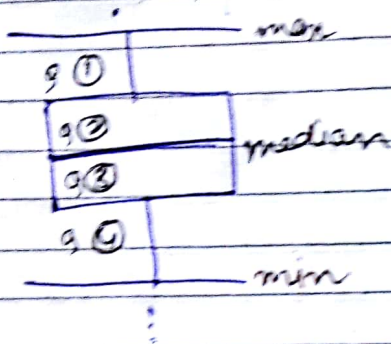 max
q ①
q ②
median
q ③
q ④
min